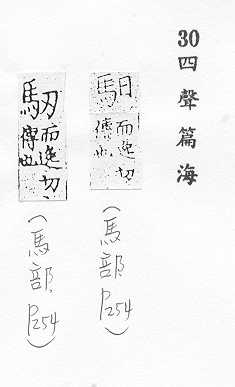 30四聲篇海
馹而逸切
傳也
(馬部P254)
而逸切
傳也
(馬部P254)